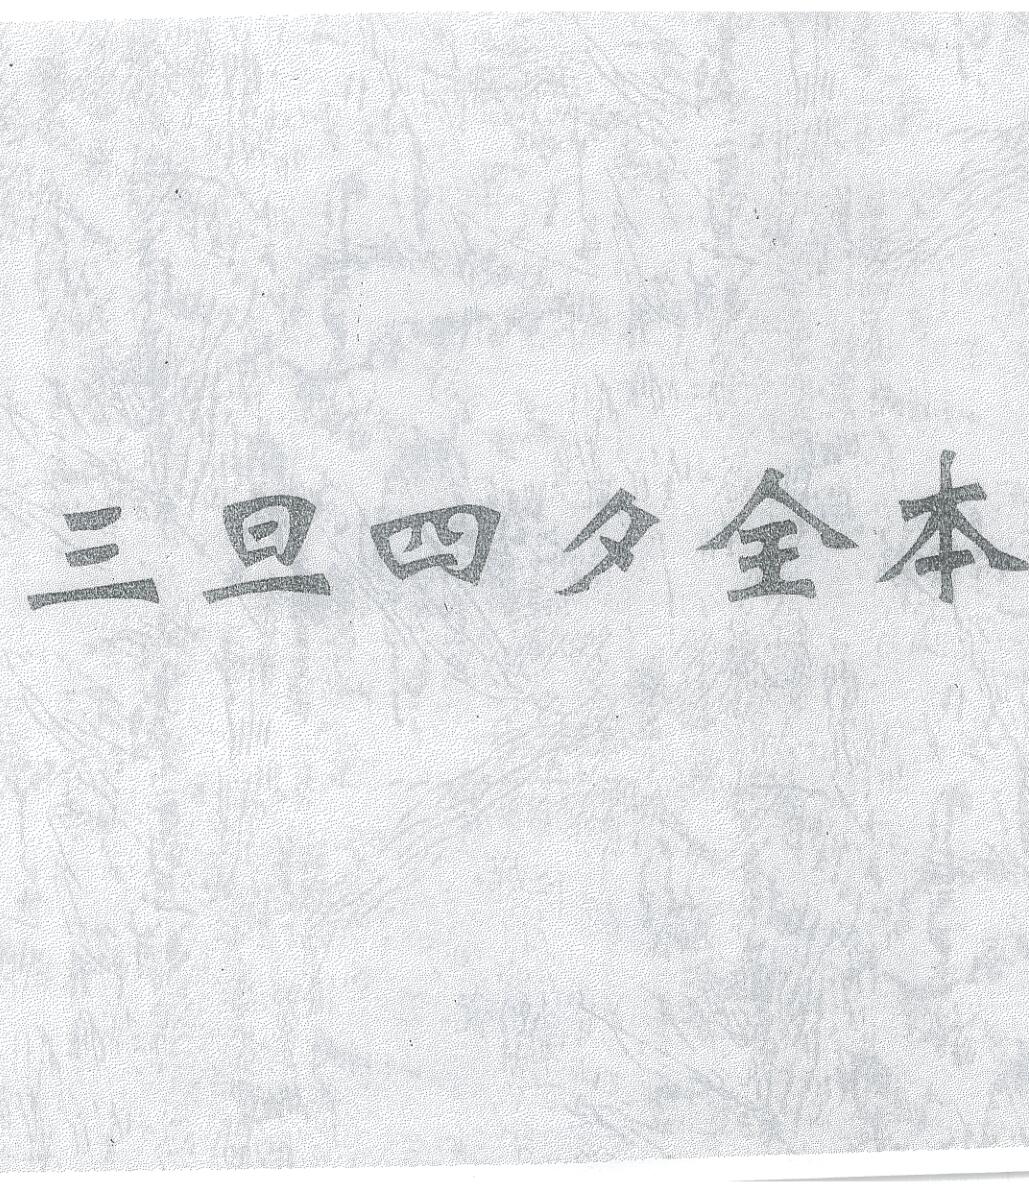 三旦四夕全本